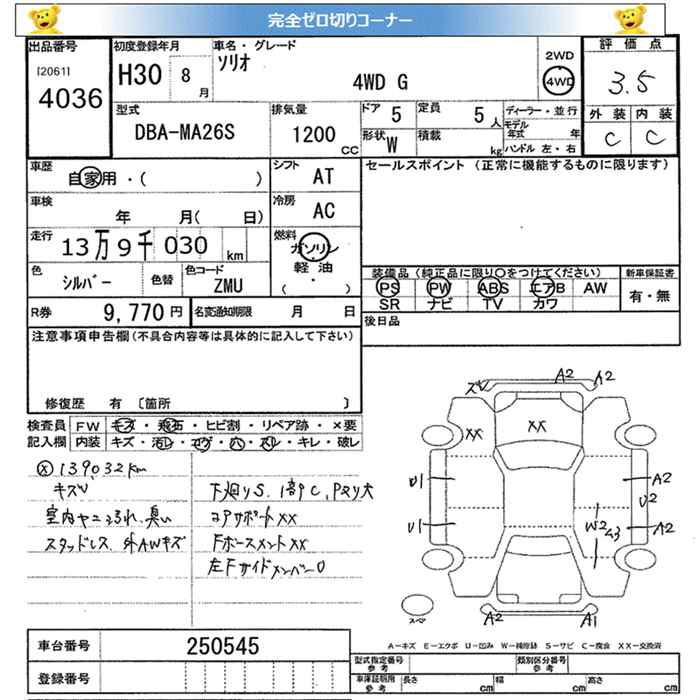 完全ゼロ切りコーナー
出品番号 初度登録年月 車名・グレード 評価点
[2061] 4036 H30 8月 ソリオ 4WD G 2WD 4WD 3.5
型式 DBA-MA26S 排気量 1200 CC ドア 5 定員 5人 ディーラー・並行 外装 内装
形状 W 積載 kg モデル年式 年 C C
ハンドル 左・右
車歴 自家用・( ) シフト AT セールスポイント (正常に機能するものに限ります)
車検 年 月( 日) 冷房 AC
走行 13万9千030 km 燃料 ガソリン・軽油 ( ・ )
色 シルバー 色替 色コード ZMU 装備品 (純正品に限り○をつけてください) 新車保証書
PS PW ABS エアB AW 有・無
SR ナビ TV カワ
R券 9,770円 名変通知期限 月 日 後日品
注意事項申告欄(不具合内容等は具体的に記入して下さい)
修復歴 有 〔箇所 〕
検査員 FW キズ・飛石・ヒビ割・リペア跡・×要
記入欄 内装 キズ・汚レ・コゲ・穴・スレ・キレ・破レ
139032km
キズU 下廻りS.
室内ヤニよごれ、臭い コアサポートXX
スタッドレス.外AWキズ FホースメントXX
左Fサイドメンバー
A2 A2
XX XX
U1 A2
U2
U1 W2 A2
スペア A2 A1
A-キズ E-エクボ U-凹み W-補修跡 S-サビ C-腐食 XX-交換済
車台番号 250545 型式指定番号 参考 類別区分番号 参考
登録番号 車庫証明用 参考 長さ cm 幅 cm 高さ cm